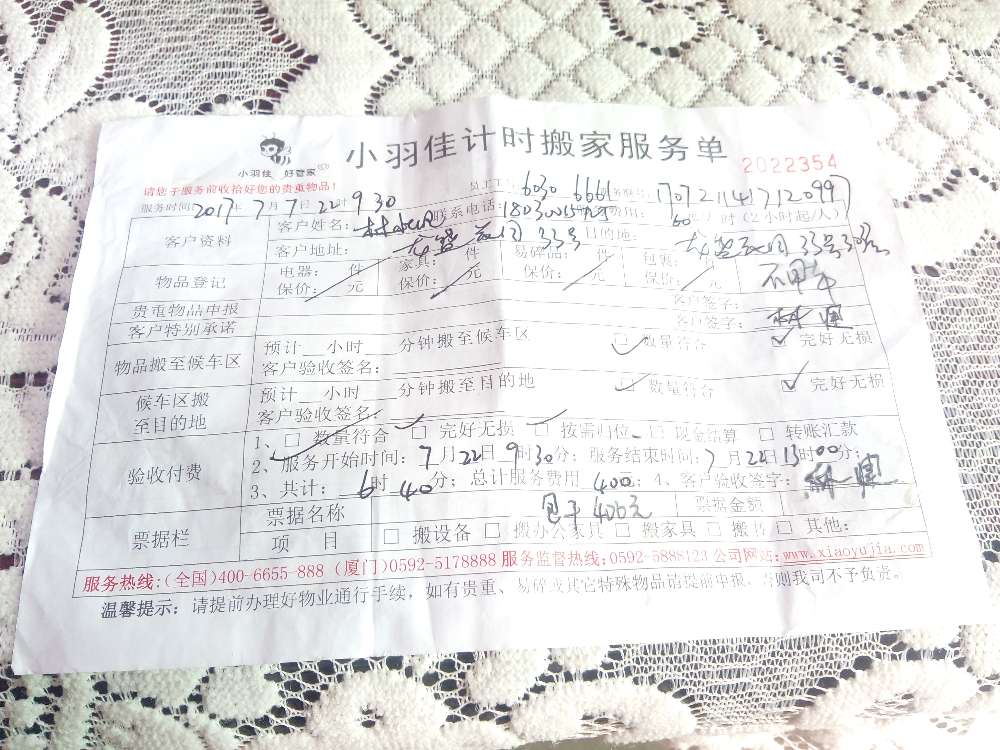 小羽佳计时搬家服务单
小羽佳 好管家
2022354
请您于服务前收拾好您的贵重物品!
员工工号: 6030 6661 1707211417120997
服务时间: 2017年7月22日 9 30
客户资料 客户姓名: 联系电话: 费用: 60元/时(2小时起/人)
客户地址: 33号 目的地: 33号
物品登记 电器: 件 家具: 件 易碎品: 件 包装:
保价: 元 保价: 元 保价: 元 保价: 元
贵重物品申报 客户签字:
客户特别承诺 客户签字:
物品搬至候车区 预计__小时____分钟搬至候车区 数量符合 完好无损
客户验收签名:
候车区搬至目的地 预计__小时____分钟搬至目的地 数量符合 完好无损
客户验收签名:
验收付费 1、□ 数量符合 □ 完好无损 □ 按需归位 □ 现金结算 □ 转账汇款
2、服务开始时间: 7月22日9时30分; 服务结束时间: 7月22日13时00分;
3、共计: 6时40分; 总计服务费用 400; 4、客户验收签字:
票据栏 票据名称 400元 票据金额
项 目 □ 搬设备 □ 搬办公家具 □ 搬家具 □ 搬书 □ 其他:
服务热线: (全国)400-6655-888 (厦门)0592-5178888 服务监督热线: 0592-5888123 公司网站: www.xiaoyujia.com
温馨提示: 请提前办理好物业通行手续, 如有贵重、易碎或其它特殊物品请提前申报, 否则我司不予负责。